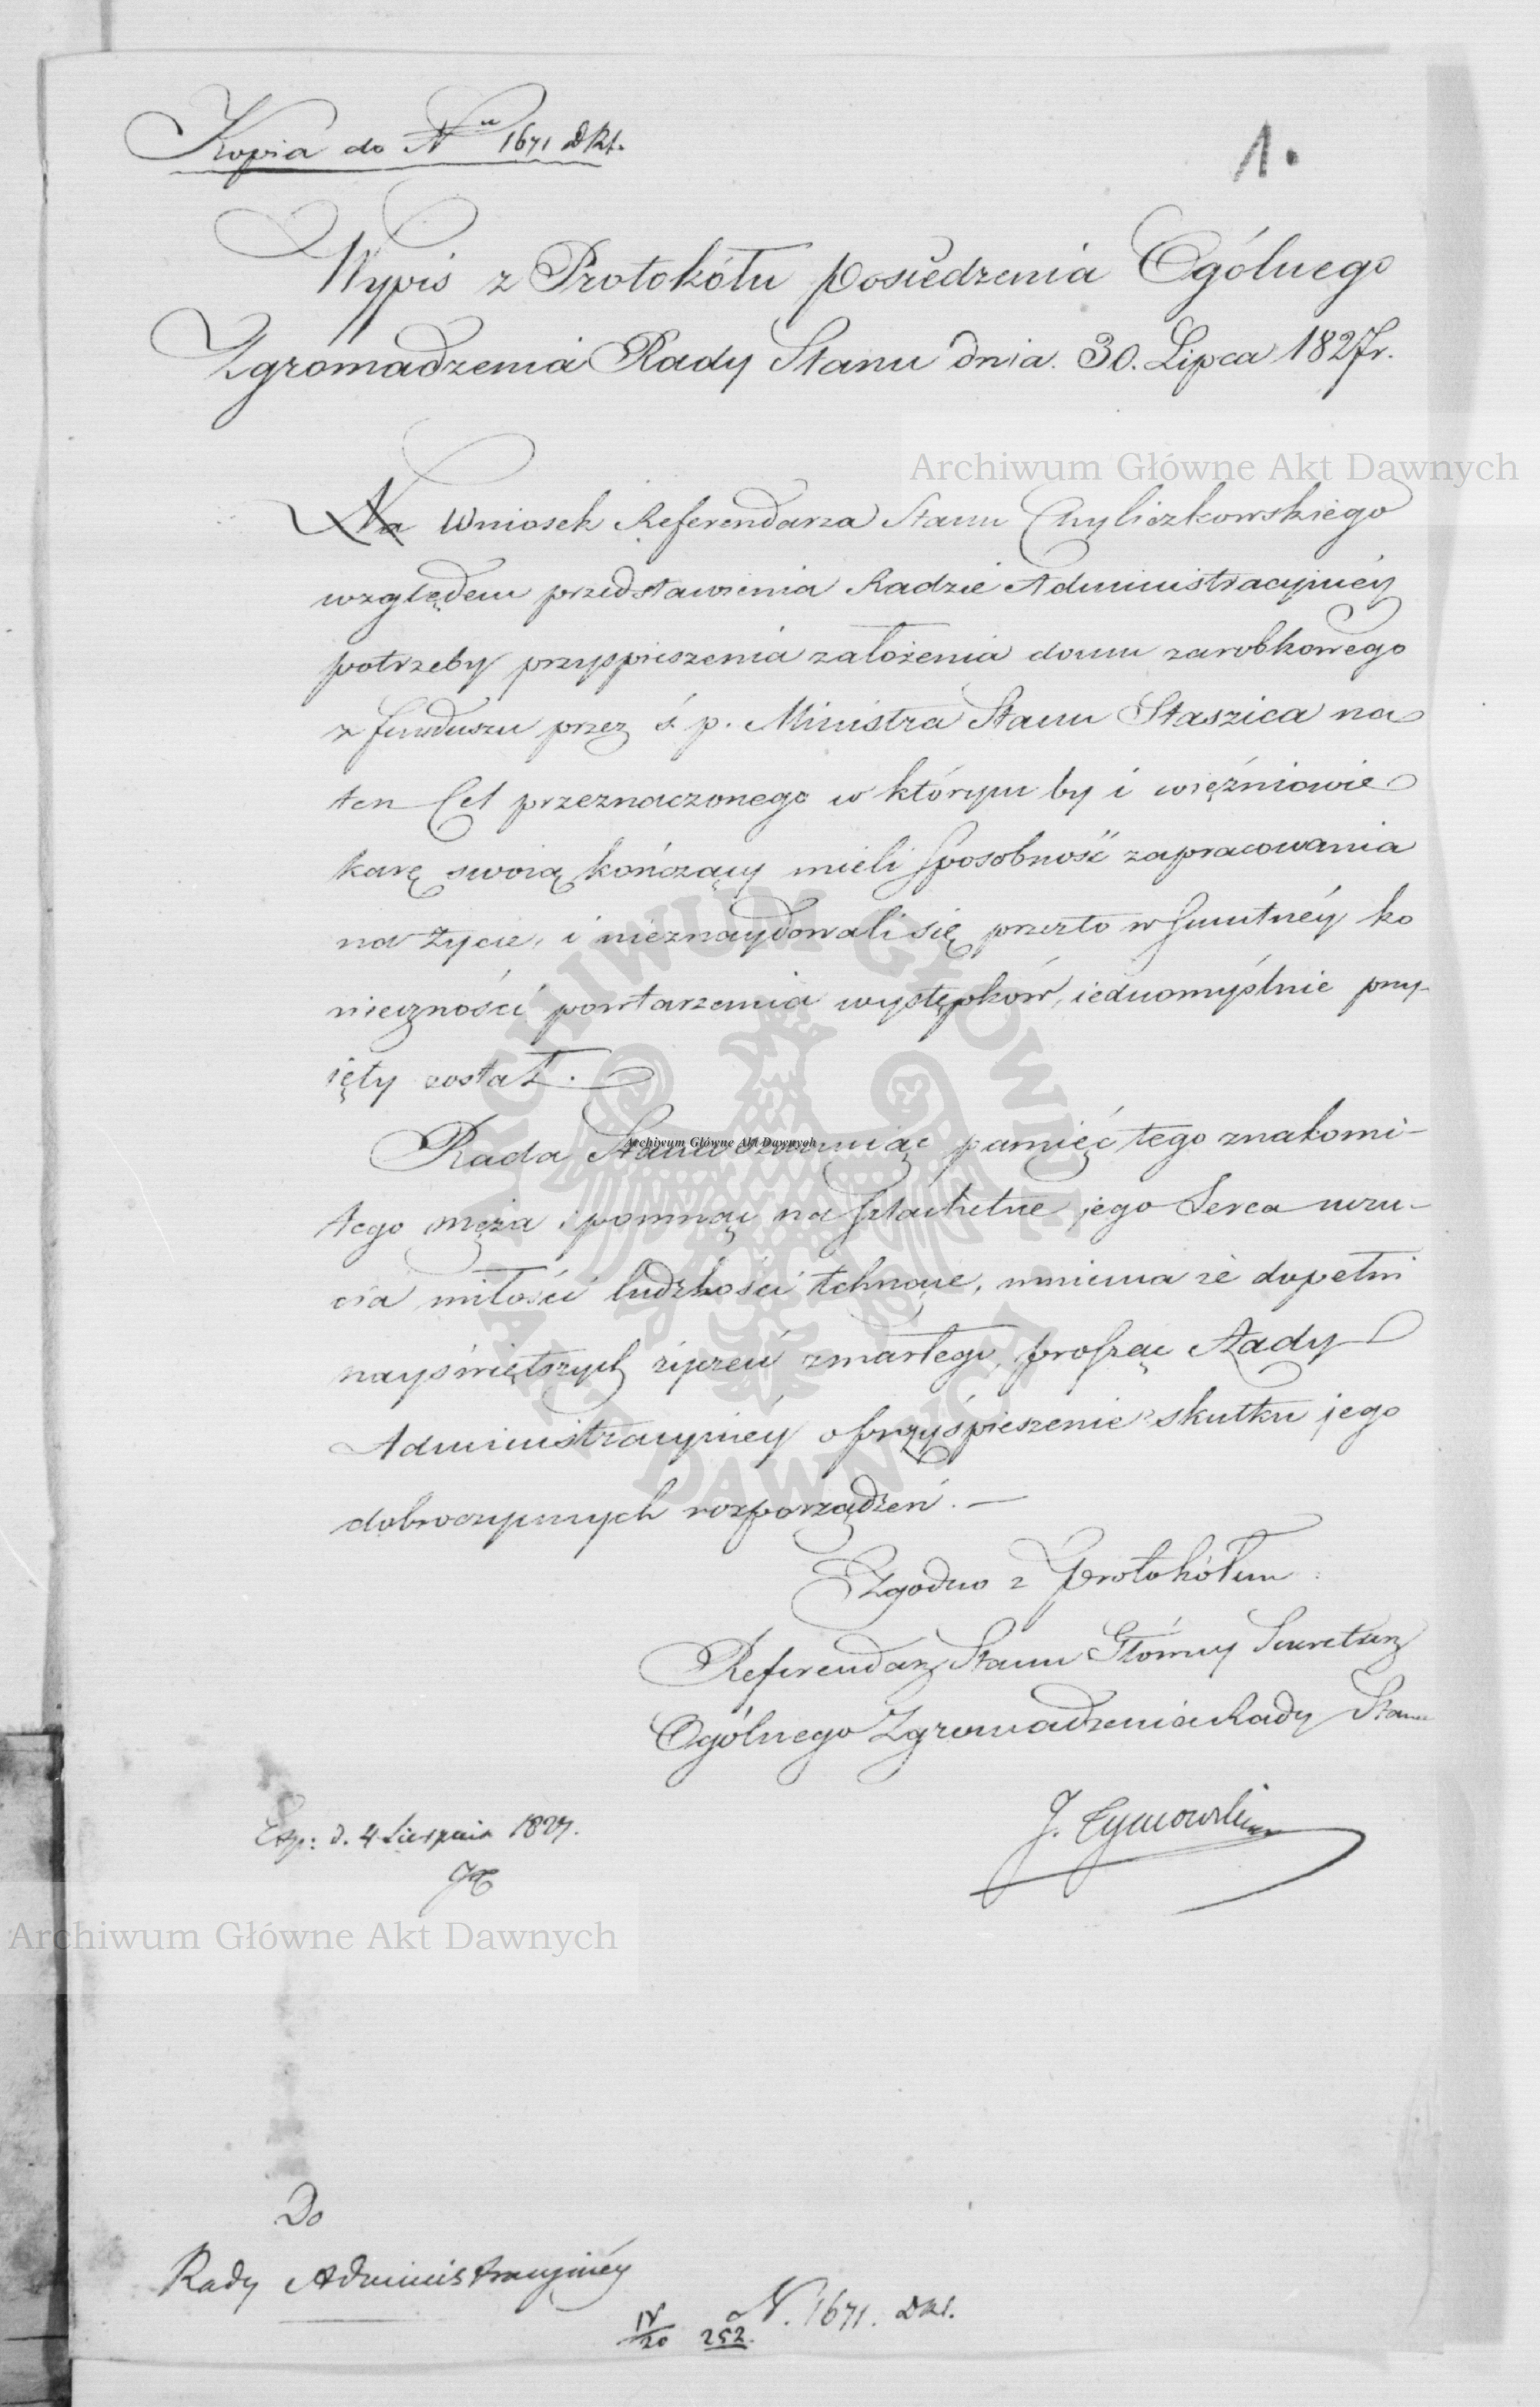 Kopia do Nru 1671 DRt.
1.
Wypis z Protokółu Posiedzenia Ogólnego
Zgromadzenia Rady Stanu dnia 30. Lipca 1827 r.
Archiwum Główne Akt Dawnych
Na Wniosek Referendarza Stanu Chyliczkowskiego
względem przedstawienia Radzie Administracyinéy
potrzeby przyspieszenia założenia domu zarobkowego
z funduszu przez ś p. Ministra Stanu Staszica na
ten Cel przeznaczonego w którym by i więźniowie
karę swoią kończący mieli sposobność zapracowania
na życie, i nieznaydowali się przeto w smutnéy ko
nieczności powtarzania występków, iednomyślnie przy-
ięty został.
Rada Stanu pamięć tego znakomi-
Archiwum Główne Akt Dawnych
tego męża i pomnąc na szlachetne jego Serca uczu-
cia miłości ludzkości tchnące, mniema że dopełni
nayświętszych życzeń zmarłego, prosząc Rady
Administracyinéy o przyśpieszenie skutku jego
dobroczynnych rozporządzeń. —
Zgodno z Protokółem:
Referendarz Stanu Główny Secretarz
Ogólnego Zgromadzenia Rady Stanu
J. Tymowski
Exp: d. 4 Sierpnia 1827.
Archiwum Główne Akt Dawnych
Do
Rady Administracyinéy
IV/20 252. N. 1671. DRt.
ARCHIWUM GŁÓWNE AKT DAWNYCH